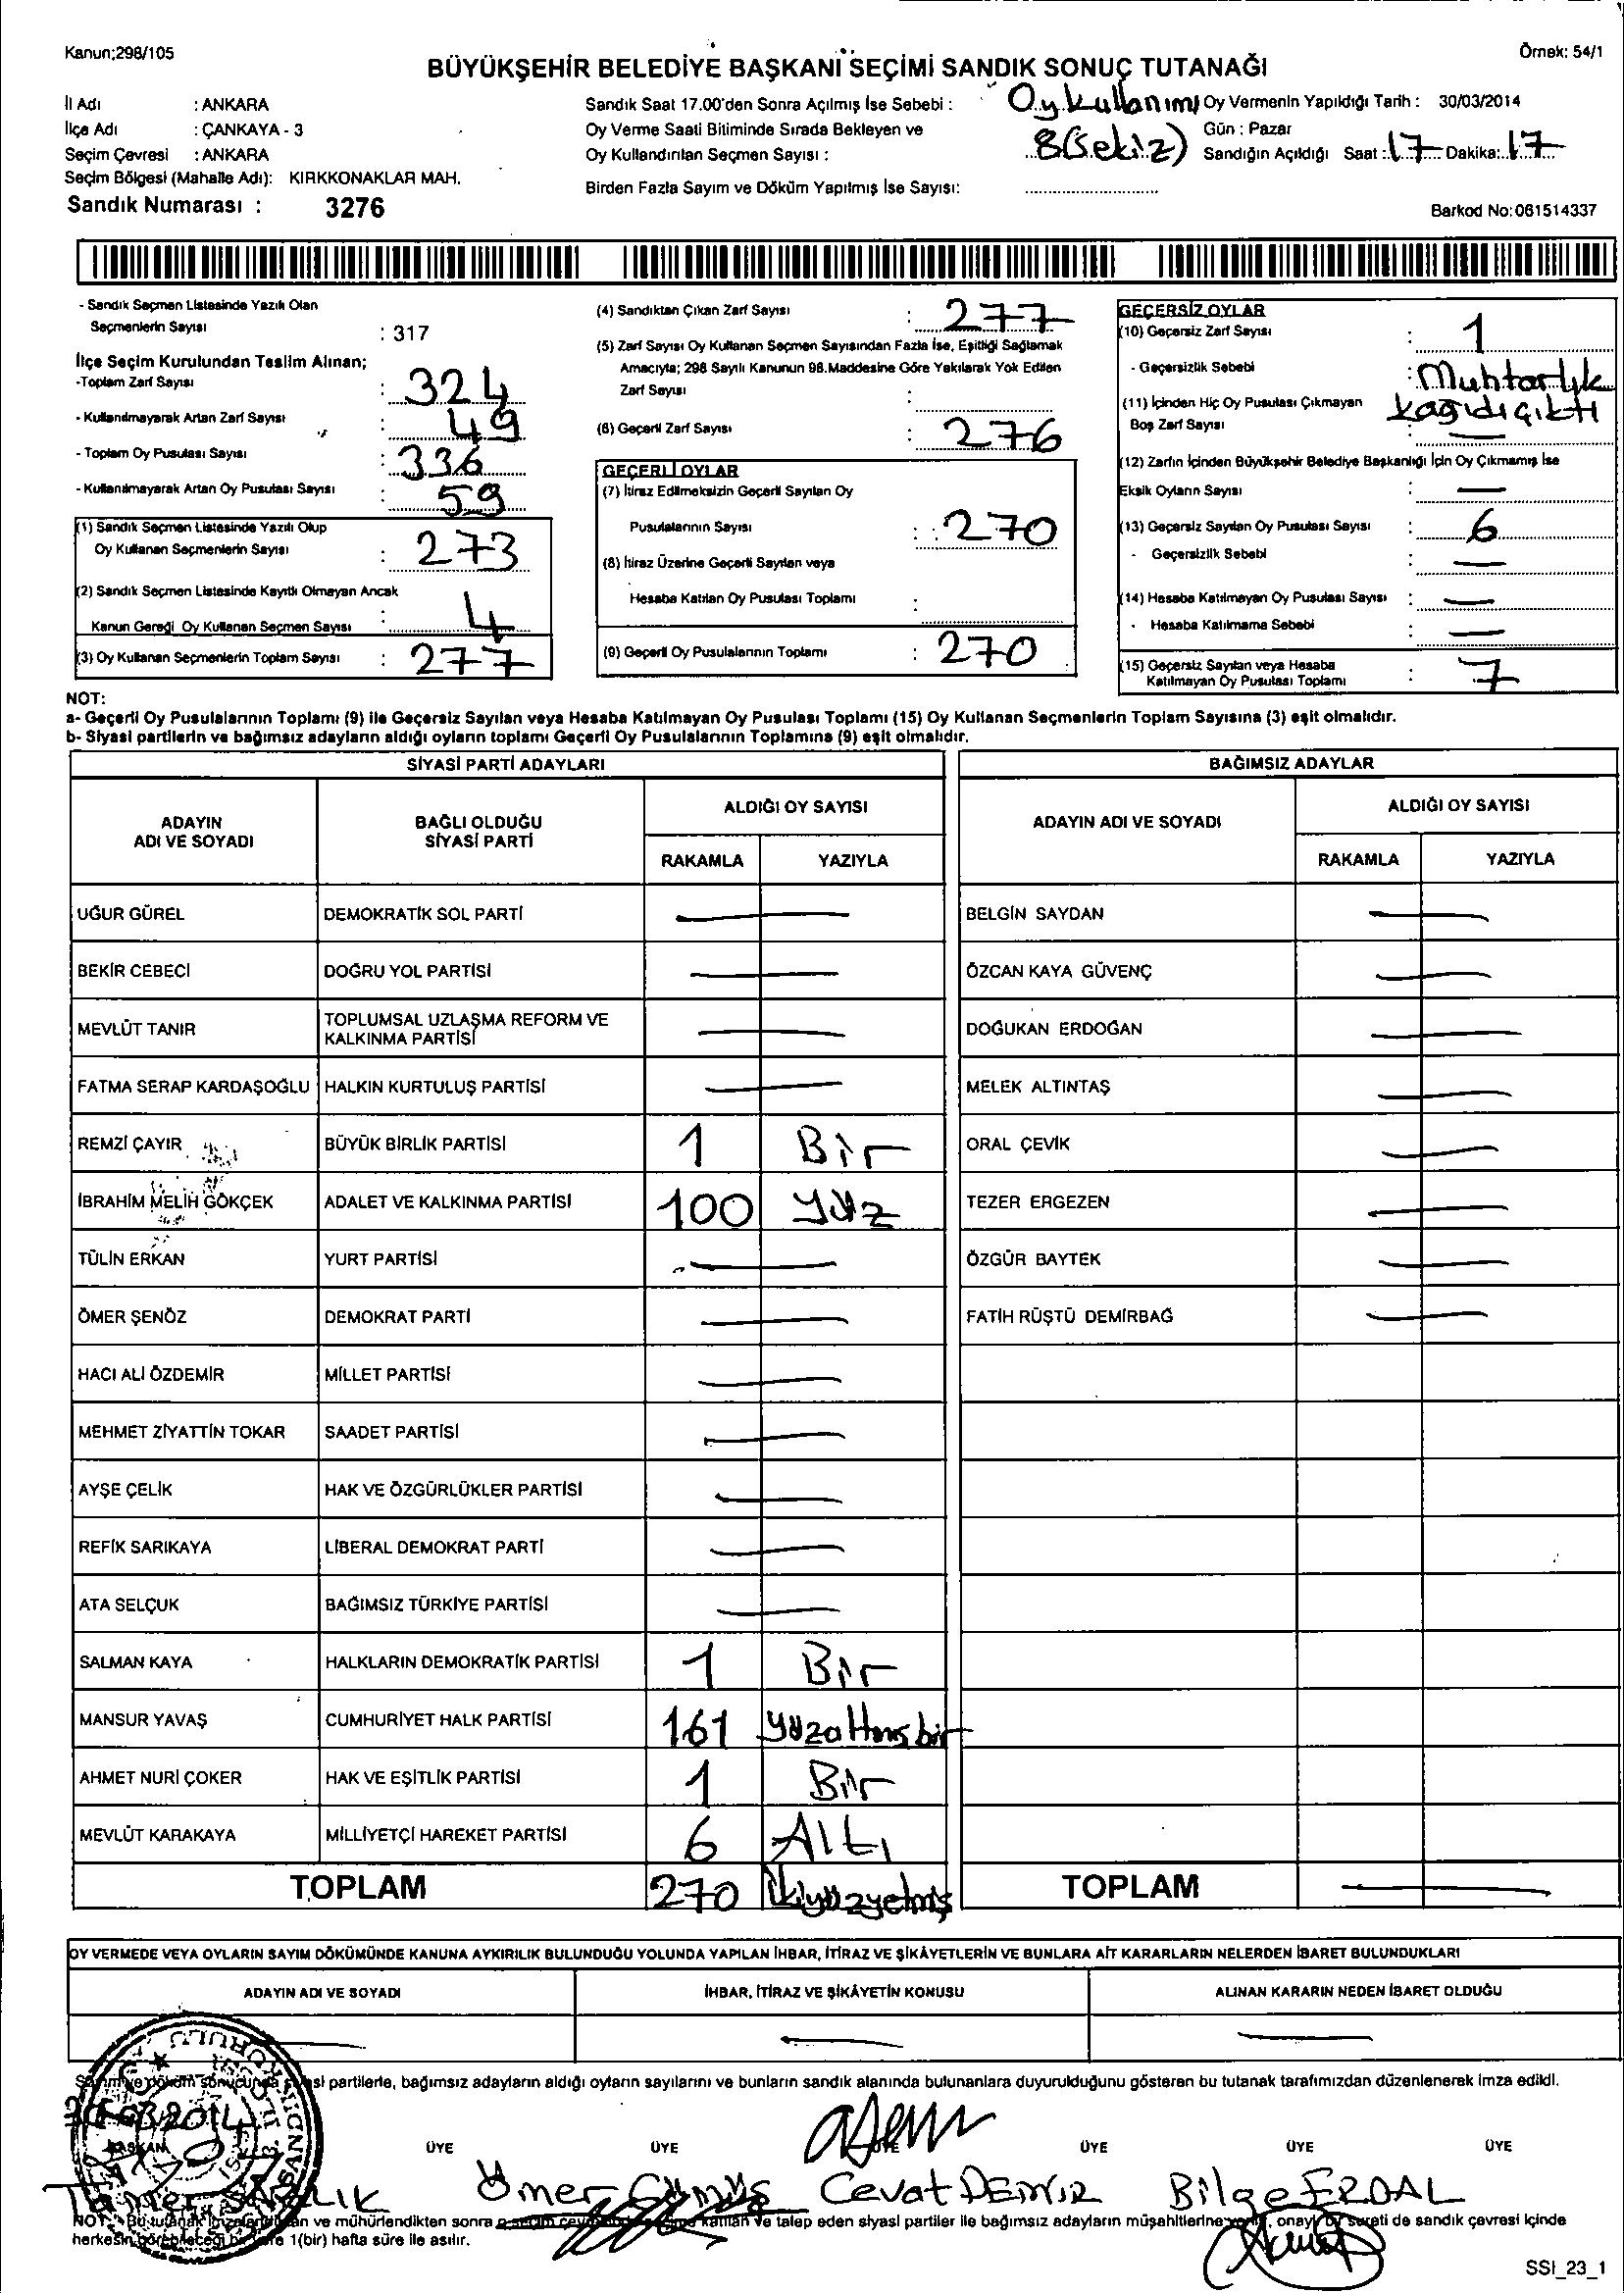 Kanun;298/105
Örnek: 54/1
BÜYÜKŞEHİR BELEDİYE BAŞKANI SEÇİMİ SANDIK SONUÇ TUTANAĞI
İl Adı : ANKARA
İlçe Adı : ÇANKAYA - 3
Seçim Çevresi : ANKARA
Seçim Bölgesi (Mahalle Adı): KIRKKONAKLAR MAH.
Sandık Numarası : 3276
Sandık Saat 17.00'den Sonra Açılmış İse Sebebi : Oy kullanımı
Oy Verme Saati Bitiminde Sırada Bekleyen ve
Oy Kullandırılan Seçmen Sayısı : 8(sekiz)
Birden Fazla Sayım ve Döküm Yapılmış İse Sayısı:
Oy Vermenin Yapıldığı Tarih : 30/03/2014
Gün : Pazar
Sandığın Açıldığı Saat : 17 Dakika: 17
Barkod No:061514337
- Sandık Seçmen Listesinde Yazılı Olan
Seçmenlerin Sayısı : 317
İlçe Seçim Kurulundan Teslim Alınan;
-Toplam Zarf Sayısı : 324
- Kullanılmayarak Artan Zarf Sayısı : 49
- Toplam Oy Pusulası Sayısı : 336
- Kullanılmayarak Artan Oy Pusulası Sayısı : 59
(1) Sandık Seçmen Listesinde Yazılı Olup
Oy Kullanan Seçmenlerin Sayısı : 273
(2) Sandık Seçmen Listesinde Kayıtlı Olmayan Ancak
Kanun Gereği Oy Kullanan Seçmen Sayısı : 4
(3) Oy Kullanan Seçmenlerin Toplam Sayısı : 277
(4) Sandıktan Çıkan Zarf Sayısı : 277
(5) Zarf Sayısı Oy Kullanan Seçmen Sayısından Fazla İse, Eşitliği Sağlamak
Amacıyla; 298 Sayılı Kanunun 98.Maddesine Göre Yakılarak Yok Edilen
Zarf Sayısı :
(6) Geçerli Zarf Sayısı : 276
GEÇERLİ OYLAR
(7) İtiraz Edilmeksizin Geçerli Sayılan Oy
Pusulalarının Sayısı : 270
(8) İtiraz Üzerine Geçerli Sayılan veya
Hesaba Katılan Oy Pusulası Toplamı :
(9) Geçerli Oy Pusulalarının Toplamı : 270
GEÇERSİZ OYLAR
(10) Geçersiz Zarf Sayısı : 1
- Geçersizlik Sebebi : Muhtarlık
kağıdı çıktı
(11) İçinden Hiç Oy Pusulası Çıkmayan
Boş Zarf Sayısı : —
(12) Zarfın İçinden Büyükşehir Belediye Başkanlığı İçin Oy Çıkmamış İse
Eksik Oyların Sayısı : —
(13) Geçersiz Sayılan Oy Pusulası Sayısı : 6
- Geçersizlik Sebebi : —
(14) Hesaba Katılmayan Oy Pusulası Sayısı : —
- Hesaba Katılmama Sebebi : —
(15) Geçersiz Sayılan veya Hesaba
Katılmayan Oy Pusulası Toplamı : 7
NOT:
a- Geçerli Oy Pusulalarının Toplamı (9) ile Geçersiz Sayılan veya Hesaba Katılmayan Oy Pusulası Toplamı (15) Oy Kullanan Seçmenlerin Toplam Sayısına (3) eşit olmalıdır.
b- Siyasi partilerin ve bağımsız adayların aldığı oyların toplamı Geçerli Oy Pusulalarının Toplamına (9) eşit olmalıdır.
SİYASİ PARTİ ADAYLARI
ADAYIN
ADI VE SOYADI
BAĞLI OLDUĞU
SİYASİ PARTİ
ALDIĞI OY SAYISI
RAKAMLA YAZIYLA
UĞUR GÜREL DEMOKRATİK SOL PARTİ —
BEKİR CEBECİ DOĞRU YOL PARTİSİ —
MEVLÜT TANIR TOPLUMSAL UZLAŞMA REFORM VE
KALKINMA PARTİSİ —
FATMA SERAP KARDAŞOĞLU HALKIN KURTULUŞ PARTİSİ —
REMZİ ÇAYIR BÜYÜK BİRLİK PARTİSİ 1 Bir
İBRAHİM MELİH GÖKÇEK ADALET VE KALKINMA PARTİSİ 100 Yüz
TÜLİN ERKAN YURT PARTİSİ —
ÖMER ŞENÖZ DEMOKRAT PARTİ —
HACI ALİ ÖZDEMİR MİLLET PARTİSİ —
MEHMET ZİYATTİN TOKAR SAADET PARTİSİ —
AYŞE ÇELİK HAK VE ÖZGÜRLÜKLER PARTİSİ —
REFİK SARIKAYA LİBERAL DEMOKRAT PARTİ —
ATA SELÇUK BAĞIMSIZ TÜRKİYE PARTİSİ —
SALMAN KAYA HALKLARIN DEMOKRATİK PARTİSİ 1 Bir
MANSUR YAVAŞ CUMHURİYET HALK PARTİSİ 161 yüzaltmışbir
AHMET NURİ ÇOKER HAK VE EŞİTLİK PARTİSİ 1 Bir
MEVLÜT KARAKAYA MİLLİYETÇİ HAREKET PARTİSİ 6 Altı
TOPLAM 270 ikiyüzyetmiş
BAĞIMSIZ ADAYLAR
ADAYIN ADI VE SOYADI
ALDIĞI OY SAYISI
RAKAMLA YAZIYLA
BELGİN SAYDAN —
ÖZCAN KAYA GÜVENÇ —
DOĞUKAN ERDOĞAN —
MELEK ALTINTAŞ —
ORAL ÇEVİK —
TEZER ERGEZEN —
ÖZGÜR BAYTEK —
FATİH RÜŞTÜ DEMİRBAĞ —
TOPLAM —
OY VERMEDE VEYA OYLARIN SAYIM DÖKÜMÜNDE KANUNA AYKIRILIK BULUNDUĞU YOLUNDA YAPILAN İHBAR, İTİRAZ VE ŞİKÂYETLERİN VE BUNLARA AİT KARARLARIN NELERDEN İBARET BULUNDUKLARI
ADAYIN ADI VE SOYADI İHBAR, İTİRAZ VE ŞİKÂYETİN KONUSU ALINAN KARARIN NEDEN İBARET OLDUĞU
— — —
Sayım ve döküm sonucunda siyasi partilerle, bağımsız adayların aldığı oyların sayılarını ve bunların sandık alanında bulunanlara duyurulduğunu gösteren bu tutanak tarafımızdan düzenlenerek imza edildi.
BAŞKAN ÜYE ÜYE ÜYE ÜYE ÜYE ÜYE
Ömer Gümüş Cevat DEMİR Bilge ERDAL
NOT: Bu tutanak ve mühürlendikten sonra ve talep eden siyasi partiler ile bağımsız adayların müşahitlerine onaylı bir sureti de sandık çevresi içinde
herkesin görebileceği bir yere 1(bir) hafta süre ile asılır.
SSI_23_1